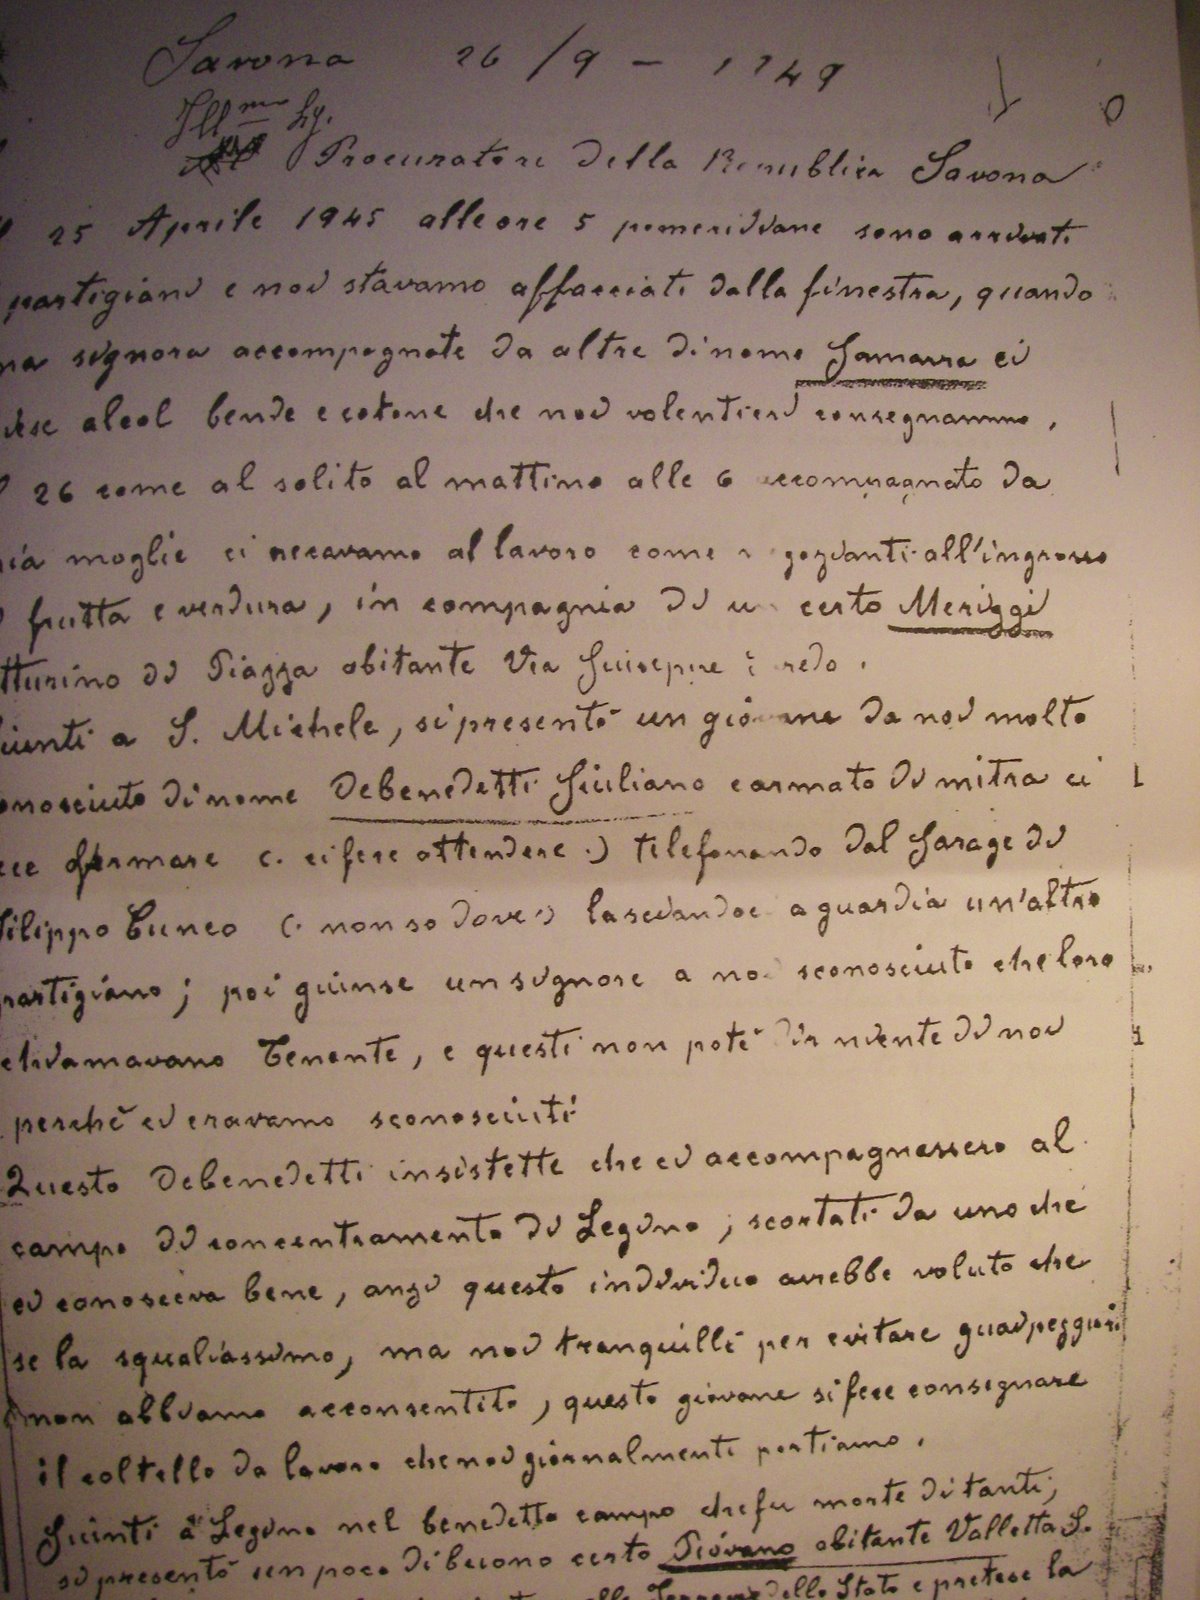 Savona 26/9 - 1949
Ill.mo Sig.
Procuratore della Repubblica Savona
25 Aprile 1945 alle ore 5 pomeridiane sono arrivati
partigiani e noi stavamo affacciati dalla finestra, quando
na signora accompagnate da altre di nome Gamarra ci
iese alcol bende e cotone che noi volentieri consegnammo.
l 26 come al solito al mattino alle 6 accompagnato da
mia moglie ci recavamo al lavoro come n gozianti all'ingrosso
i frutta e verdura, in compagnia di un certo Meriggi
tturino di Piazza abitante Via Guiseppe
iunti a S. Michele, si presentò un giovane da noi molto
onosciuto di nome Debenedetti Giuliano e armato di mitra ci
ece fermare (. ci fece attendere .) telefonando dal Garage di
Filippo Cuneo (. non so dove .) lasciandoci a guardia un'altro
partigiano; poi giunse un signore a noi sconosciuto che loro
chiamavano Tenente, e questi non poté dir niente di noi
perchè ci eravamo sconosciuti
Questo Debenedetti insistette che ci accompagnassero al
campo di concentramento di Legino, scortati da uno che
ci conosceva bene, anzi questo individuo avrebbe voluto che
se la squaliassimo, ma noi tranquilli per evitare guai peggiori
non abbiamo acconsentito, questo giovane si fece consegnare
il coltello da lavoro che noi giornalmenti portiamo.
Guinti a Legino nel benedetto campo che fu morte di tanti;
si presentò un poco di buono certo Piovano abitante Valletta S.
delle Ferrovie dello Stato e pretese la